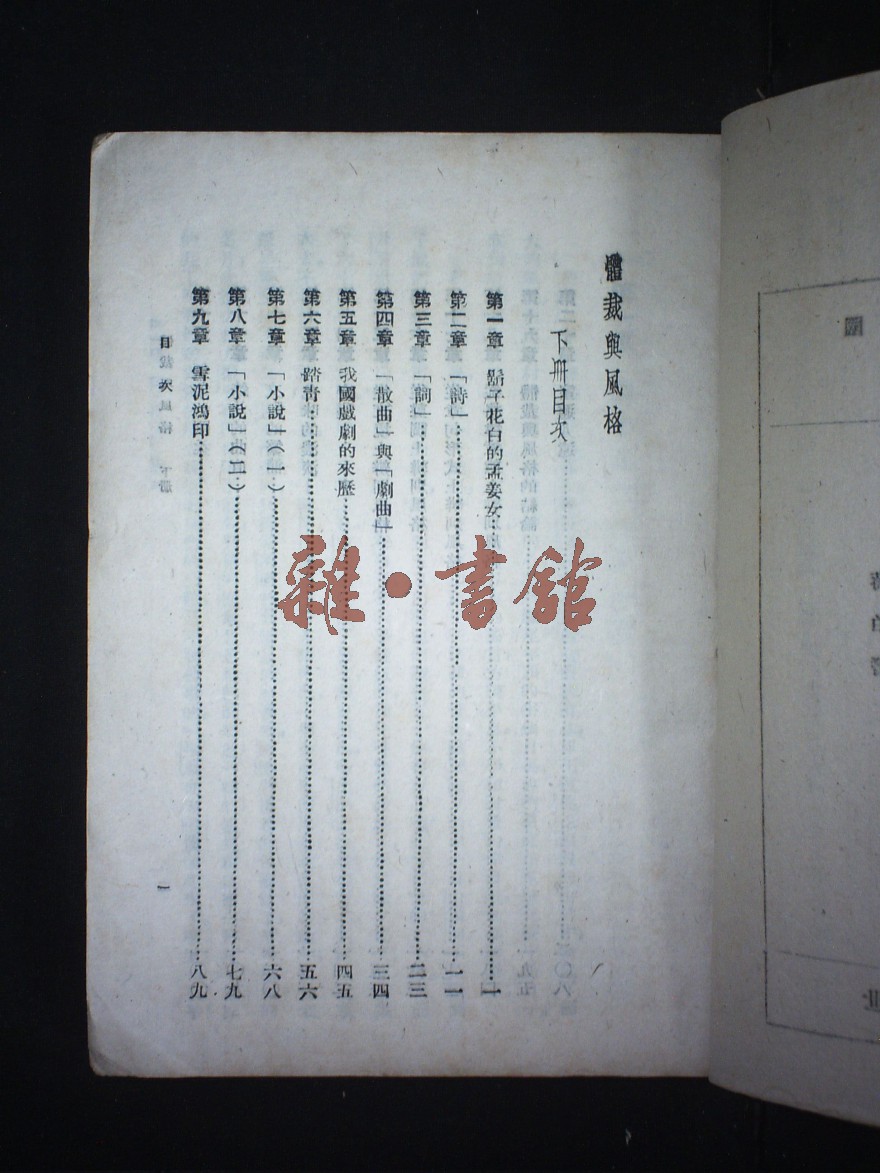 體裁與風格
下册目次
第一章 鬍子花白的孟姜女……一
第二章 「詩」……一一
第三章 「詞」……二三
第四章 「散曲」與「劇曲」……三四
第五章 我國戲劇的來歷……四五
第六章 踏青……五六
第七章 「小說」(一)……六八
第八章 「小說」(二)……七九
第九章 雪泥鴻印……八九
目次
一
雜·書館